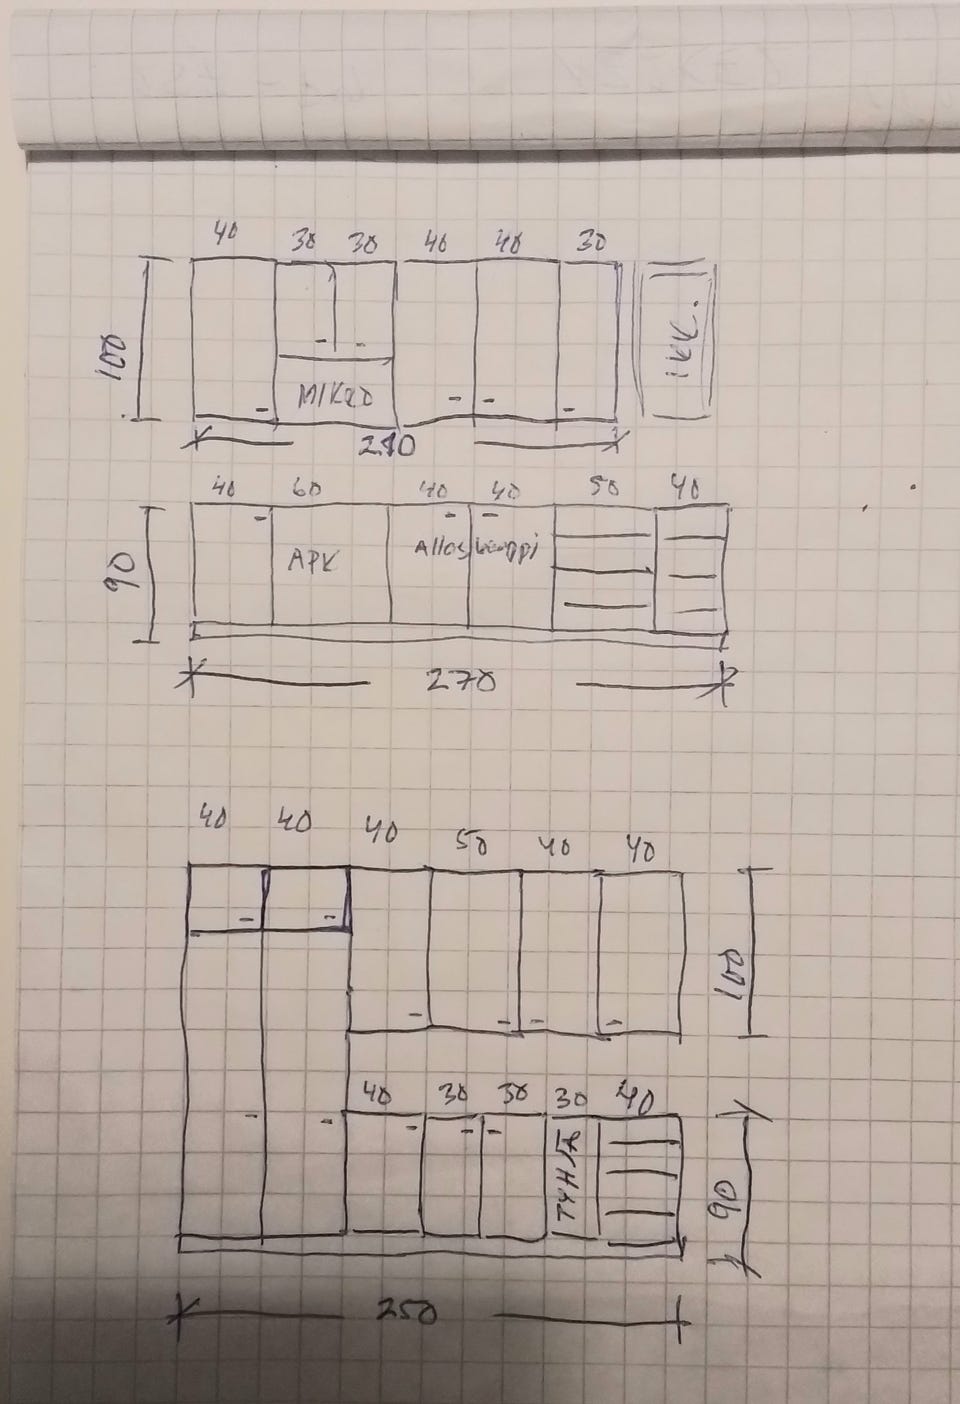 40 30 30 40 40 30
100
MIKRO
ikk.
210
40 60 40 40 50 40
90
APK
Allaskaappi
270
40 40 40 50 40 40
100
40 30 30 30 40
TYHJÄ
90
250